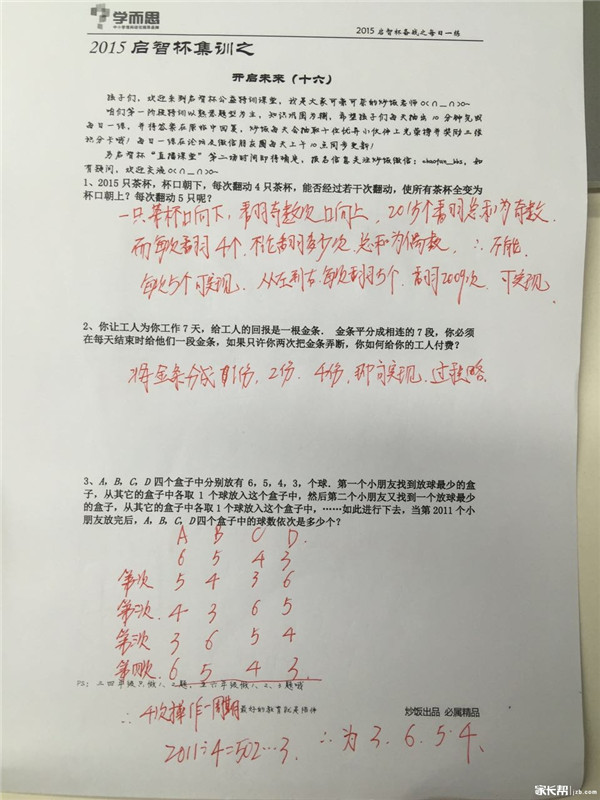 学而思
2015启智杯备战之每日一练
2015启智杯集训之
开启未来（十六）
孩子们，欢迎来到启智杯公益特训课堂，我是大家可亲可爱的炒饭老师o(∩_∩)o~
咱们第一阶段特训以熟悉题型为主，知识巩固为辅，希望孩子们每天抽出10分钟完成
每日一练，并将答案在原帖中回复，炒饭每天会抽取十位优异小伙伴上光荣榜并奖励三张
积分卡哦！每日一练在论坛及微信朋友圈每天上午10点同步更新！
另启智杯“直播课堂”第二场时间即将确定，报名信息关注炒饭微信：，如
有疑问，欢迎交流o(∩_∩)o~
1、2015只茶杯，杯口朝下，每次翻动4只茶杯，能否经过若干次翻动，使所有茶杯全变为
杯口朝上？每次翻动5只呢？
一只茶杯口向下，翻奇数次口向上，2015个翻总和为奇数.
而每次翻4个，不论翻多少次 总和为偶数，∴不能.
每次5个可实现. 从左到右.每次翻5个，翻2009次，可实现
2、你让工人为你工作7天，给工人的回报是一根金条. 金条平分成相连的7段，你必须
在每天结束时给他们一段金条，如果只许你两次把金条弄断，你如何给你的工人付费？
将金条分成1份，2份，4份，即可实现.过程略.
3、A，B，C，D四个盒子中分别放有6，5，4，3，个球．第一个小朋友找到放球最少的盒
子，从其它的盒子中各取1个球放入这个盒子中，然后第二个小朋友又找到一个放球最少
的盒子，从其它的盒子中各取1个球放入这个盒子中，……如此进行下去，当第2011个小
朋友放完后，A，B，C，D四个盒子中的球数依次是多少个？
A B C D.
6 5 4 3
第一次 5 4 3 6
第二次. 4 3 6 5
第三次 3 6 5 4
第四次. 6 5 4 3.
PS：三四年级只做1、2题，五六年级做1、2、3题哦
∴4次操作一周期
最好的教育就是陪伴
炒饭出品 必属精品
2011÷4=502…3. ∴为3.6.5.4.
家长帮 jzb.com